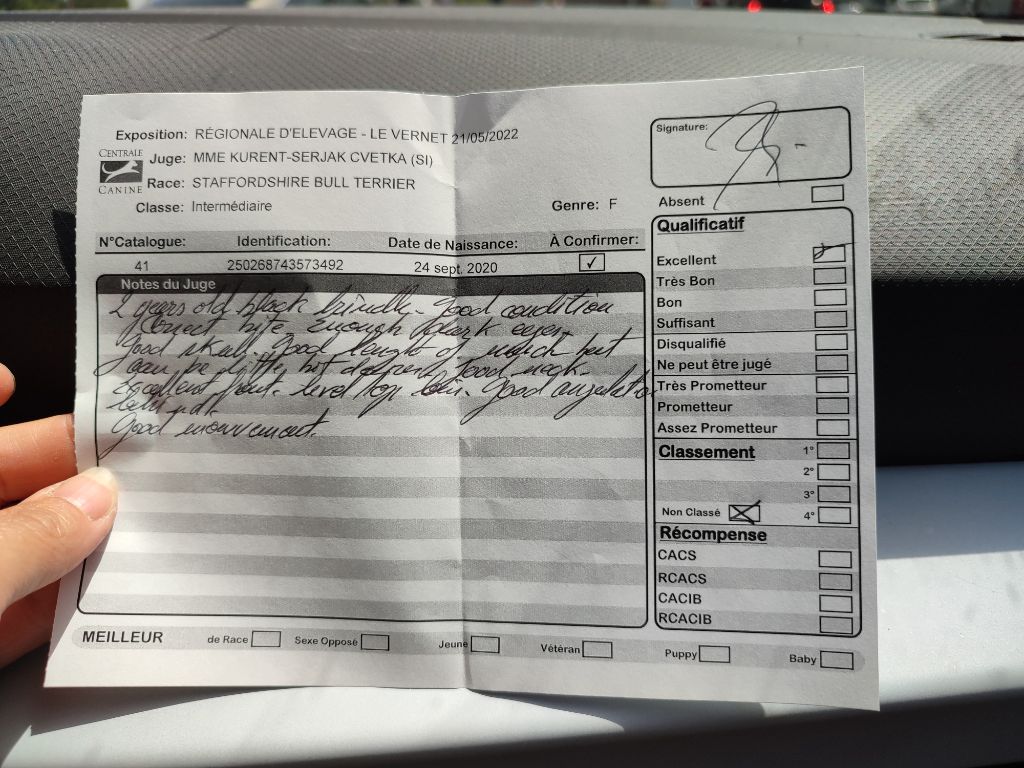 Exposition: RÉGIONALE D'ELEVAGE - LE VERNET 21/05/2022
CENTRALE
CANINE
Juge: MME KURENT-SERJAK CVETKA (SI)
Race: STAFFORDSHIRE BULL TERRIER
Classe: Intermédiaire
Genre: F
N°Catalogue: Identification: Date de Naissance: À Confirmer:
41 250268743573492 24 sept. 2020 ✓
Notes du Juge
2 years old black brindle. Good condition
Correct bite enough dark eyes.
Good skull. Good lenght of but
can be little bit Good neck.
Excellent front. level top line. Good angulation
Good mouvement.
Signature:
Absent
Qualificatif
Excellent
Très Bon
Bon
Suffisant
Disqualifié
Ne peut être jugé
Très Prometteur
Prometteur
Assez Prometteur
Classement 1°
2°
3°
Non Classé 4°
Récompense
CACS
RCACS
CACIB
RCACIB
MEILLEUR de Race Sexe Opposé Jeune Vétéran Puppy Baby